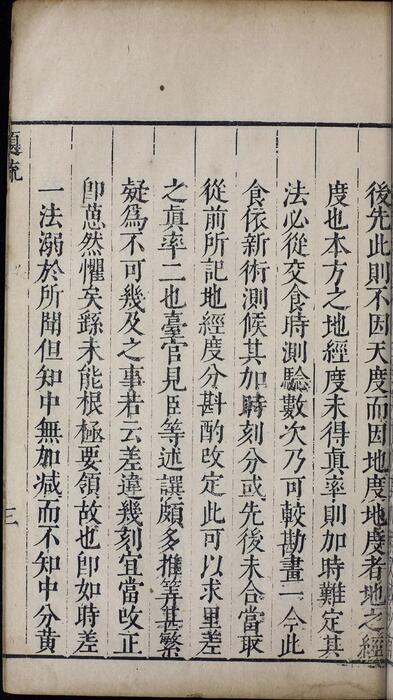 後先此則不因天度而因地度地度者地之經
度也本方之地經度未得眞率則加時難定其
法必從交食時測驗數次乃可較勘畫一今此
食依新術測候其加時刻分或先後未合當取
從前所記地經度分斟酌改定此可以求里差
之眞率二也臺官見臣等述譔頗多推筭甚繁
疑爲不可幾及之事若云差違幾刻宜當改正
卽蒽然懼矣繇未能根極要領故也卽如時差
一法溺於所聞但知中無加减而不知中分黃
三